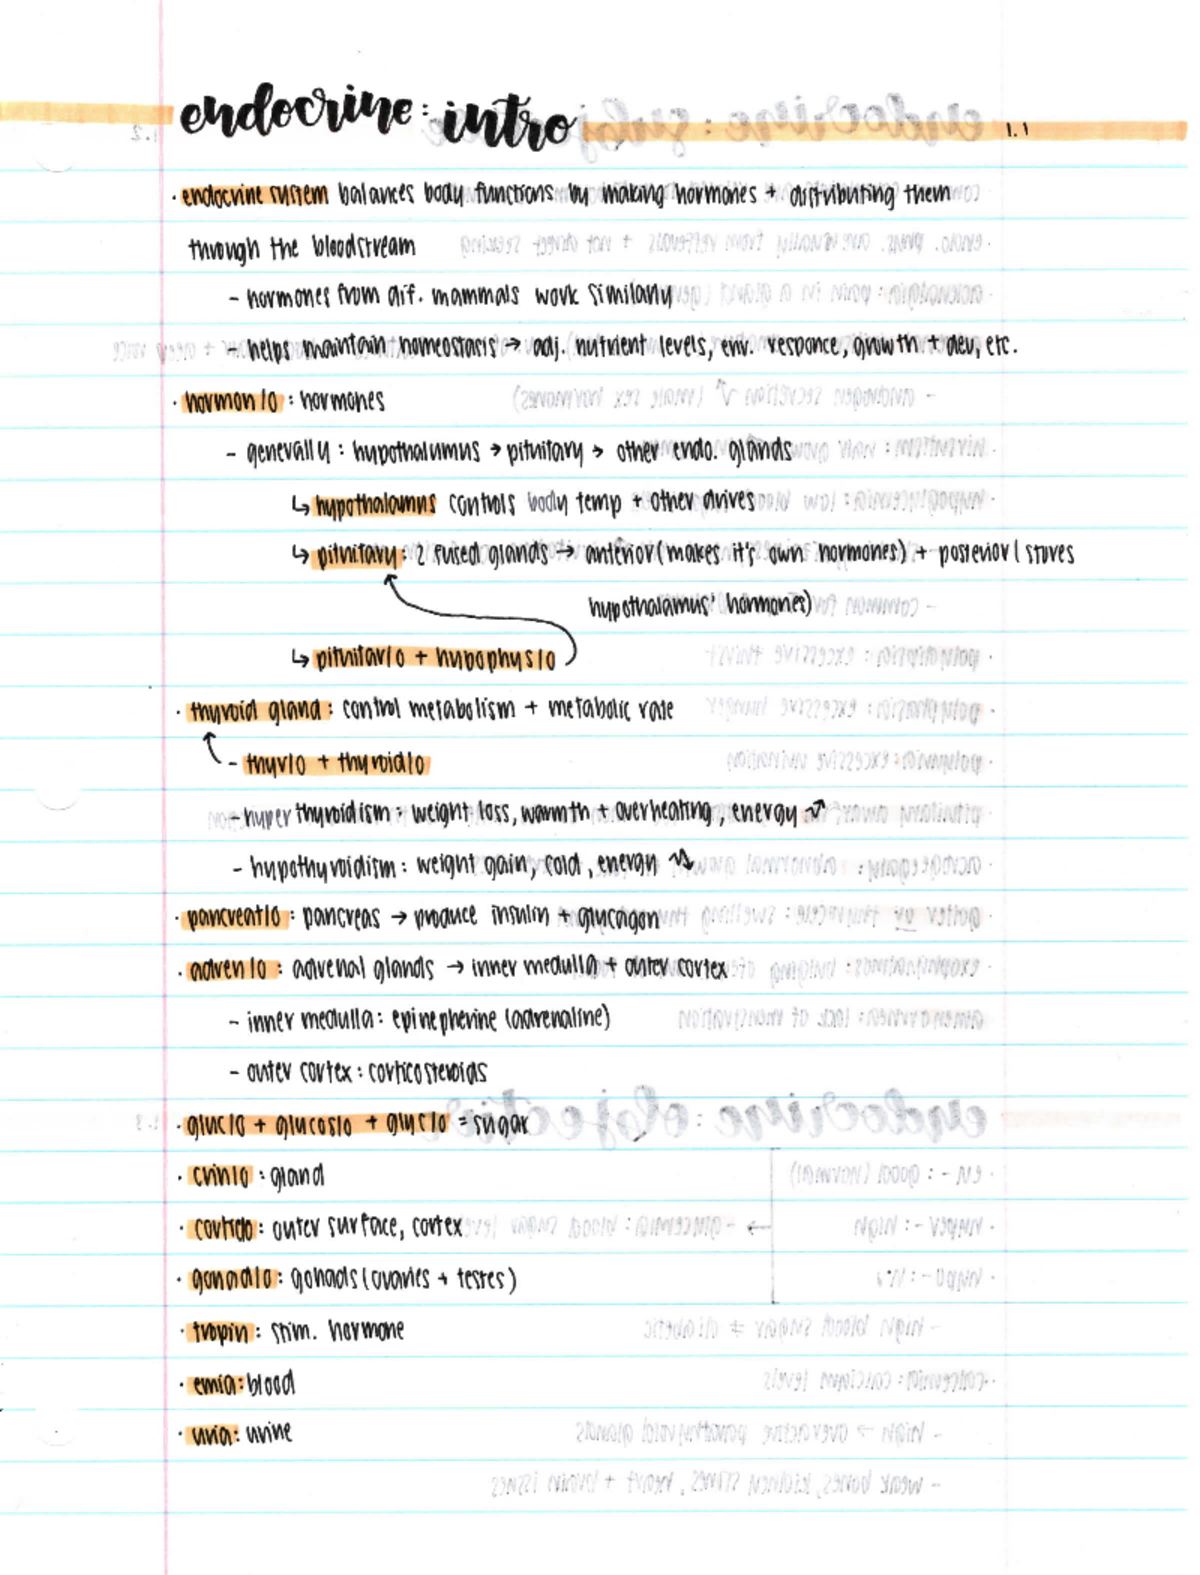 endocrine: intro
1.1
· endocrine system balances body functions by making hormones + distributing them
through the bloodstream
- hormones from dif. mammals work similarly
- helps maintain homeostasis → adj. nutrient levels, env. responce, growth + dev, etc.
· hormon/o : hormones
- generally : hypothalumus → pituitary → other endo. glands
↳ hypothalamus controls body temp + other drives
↳ pituitary: 2 fused glands → anterior (makes it's own hormones) + posterior (stores
hypothalamus' hormones)
↳ pituitar/o + hypophys/o
· thyroid gland: control metabolism + metabolic rate
- thyr/o + thyroid/o
- hyperthyroidism : weight loss, warmth + overheating, energy ↗
- hypothyroidism : weight gain, cold, energy ↘
· pancreat/o : pancreas → produce insulin + glucagon
· adren/o : adrenal glands → inner medulla + outer cortex
- inner medulla: epinepherine (adrenaline)
- outer cortex : corticosteroids
· gluc/o + glucos/o + glyc/o = sugar
· crin/o : gland
· cortic/o : outer surface, cortex
· gonad/o : gonads (ovaries + testes)
· tropin : stim. hormone
· emia: blood
· uria: urine